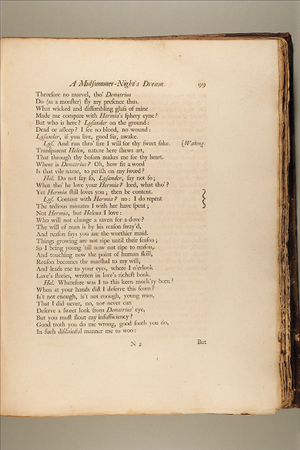 A Midsummer-Night's Dream. 99
Therefore no marvel, tho' Demetrius
Do (as a monster) fly my presence thus.
What wicked and dissembling glass of mine
Made me compare with Hermia's sphery eyne?
But who is here? Lysander on the ground:
Dead or asleep? I see no blood, no wound:
Lysander, if you live, good sir, awake.
Lys. And run thro' fire I will for thy sweet sake. [Waking.
Transparent Helen, nature here shews art,
That through thy bosom makes me see thy heart.
Where is Demetrius? Oh, how fit a word
Is that vile name, to perish on my sword?
Hel. Do not say so, Lysander, say not so;
What tho' he love your Hermia? lord, what tho'?
Yet Hermia still loves you; then be content.
Lys. Content with Hermia? no: I do repent
The tedious minutes I with her have spent;
Not Hermia, but Helena I love:
Who will not change a raven for a dove?
The will of man is by his reason sway'd,
And reason says you are the worthier maid.
Things growing are not ripe until their season;
So I being young 'till now not ripe to reason,
And touching now the point of human skill,
Reason becomes the marshal to my will,
And leads me to your eyes, where I o'erlook
Love's stories, written in love's richest book.
Hel. Wherefore was I to this keen mock'ry born?
When at your hands did I deserve this scorn?
Is't not enough, is't not enough, young man,
That I did never, no, nor never can
Deserve a sweet look from Demetrius' eye,
But you must flout my insufficiency?
Good troth you do me wrong, good sooth you do,
In such disdainful manner me to woo:
N 2 But